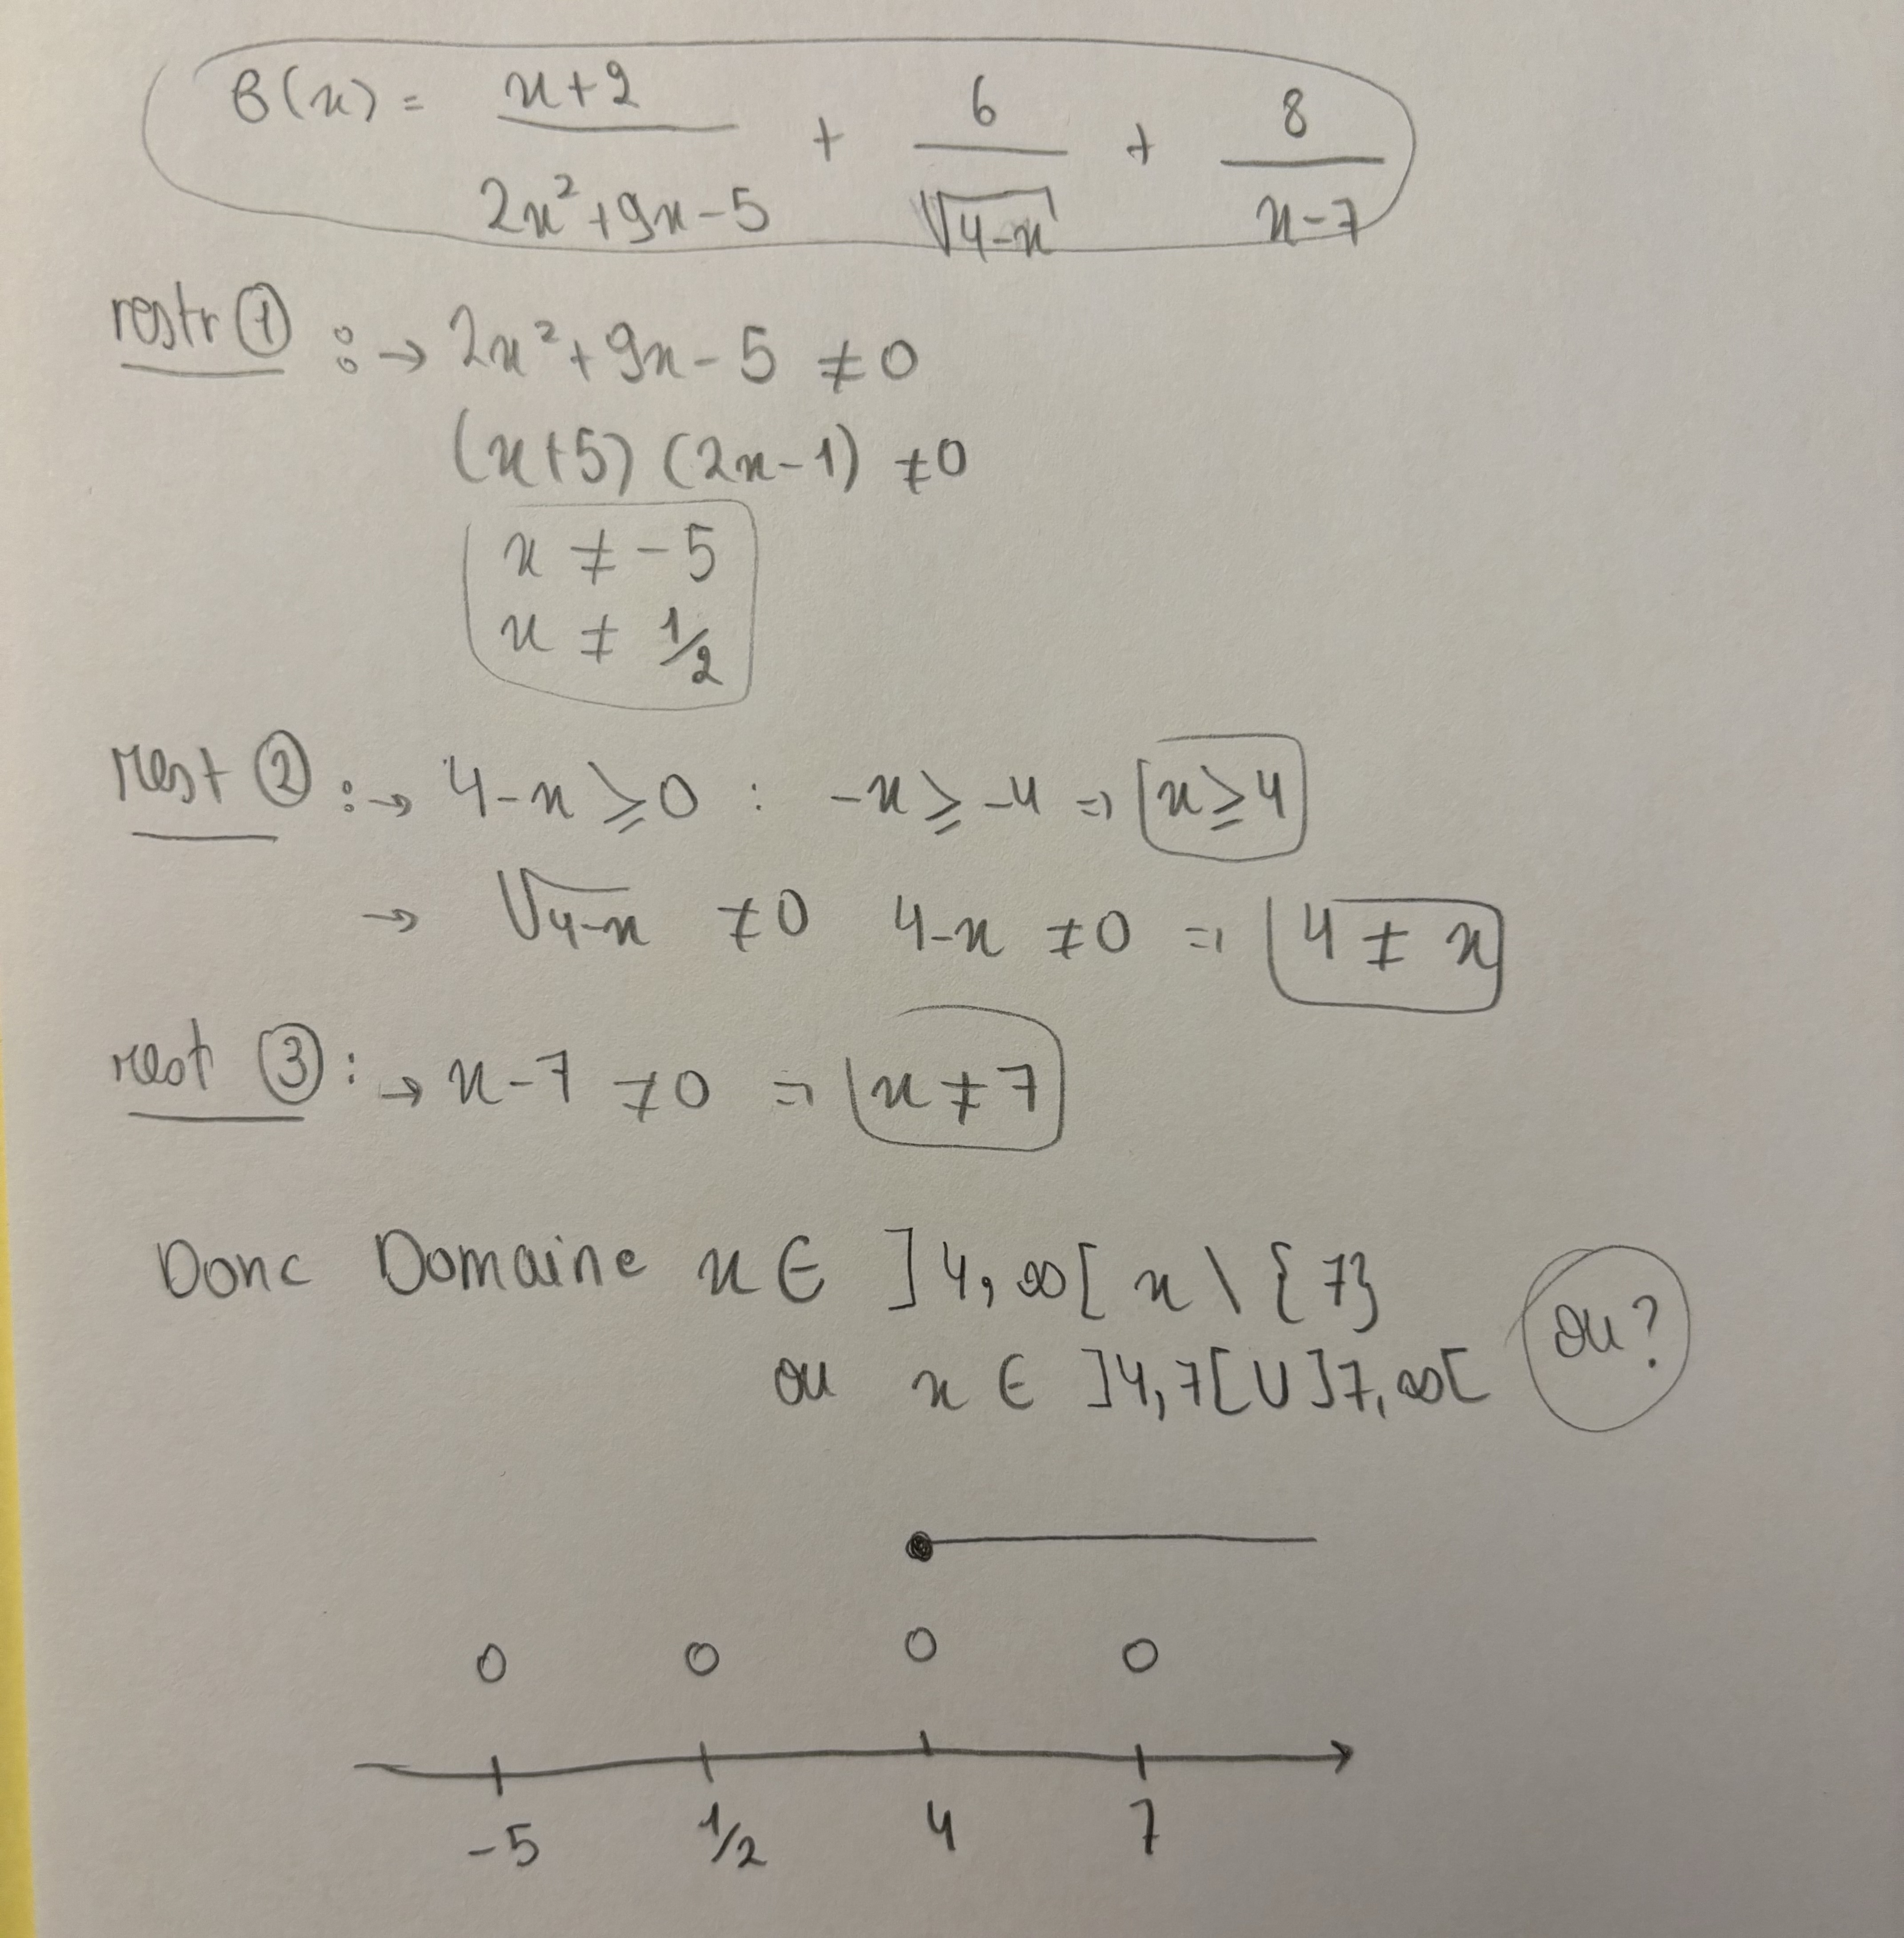 B(x) = x+2 / 2x²+9x-5 + 6 / √4-x + 8 / x-7
restr ① : → 2x²+9x-5 ≠0
(x+5) (2x-1) ≠0
x ≠ -5
x ≠ 1/2
rest ② : → 4-x ⩾ 0 : -x ⩾ -4 => x ⩾ 4
→ √4-x ≠0 4-x ≠0 => 4 ≠ x
rest ③ : → x-7 ≠0 => x ≠ 7
Donc Domaine x ∈ ]4,∞[ x \ {7}
ou x ∈ ]4,7[ U ]7,∞[ ou?
-5 1/2 4 7